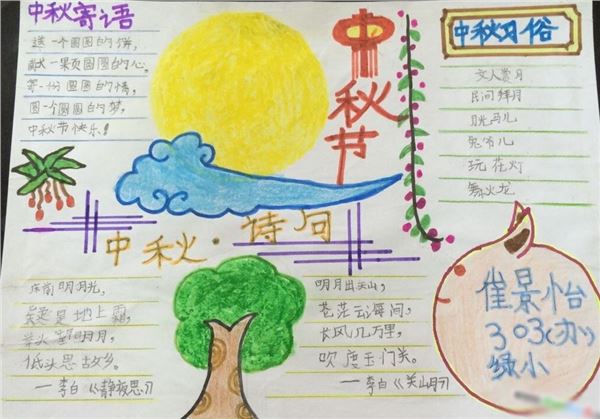 中秋寄语
送一个圆圆的饼,
献一果页圆圆的心。
等一份圆圆的情,
圆一个圆圆的梦,
中秋节快乐!
中秋节
中秋习俗
文人赏月
民间拜月
月光马儿
兔爷儿
玩花灯
舞火龙
中秋·诗词
床前明月光,
疑是地上霜,
举头望明月,
低头思故乡。
——李白《静夜思》
明月出天山,
苍茫云海间,
长风几万里,
吹度玉门关。
——李白《关山月》
崔景怡
303(办)
绿小